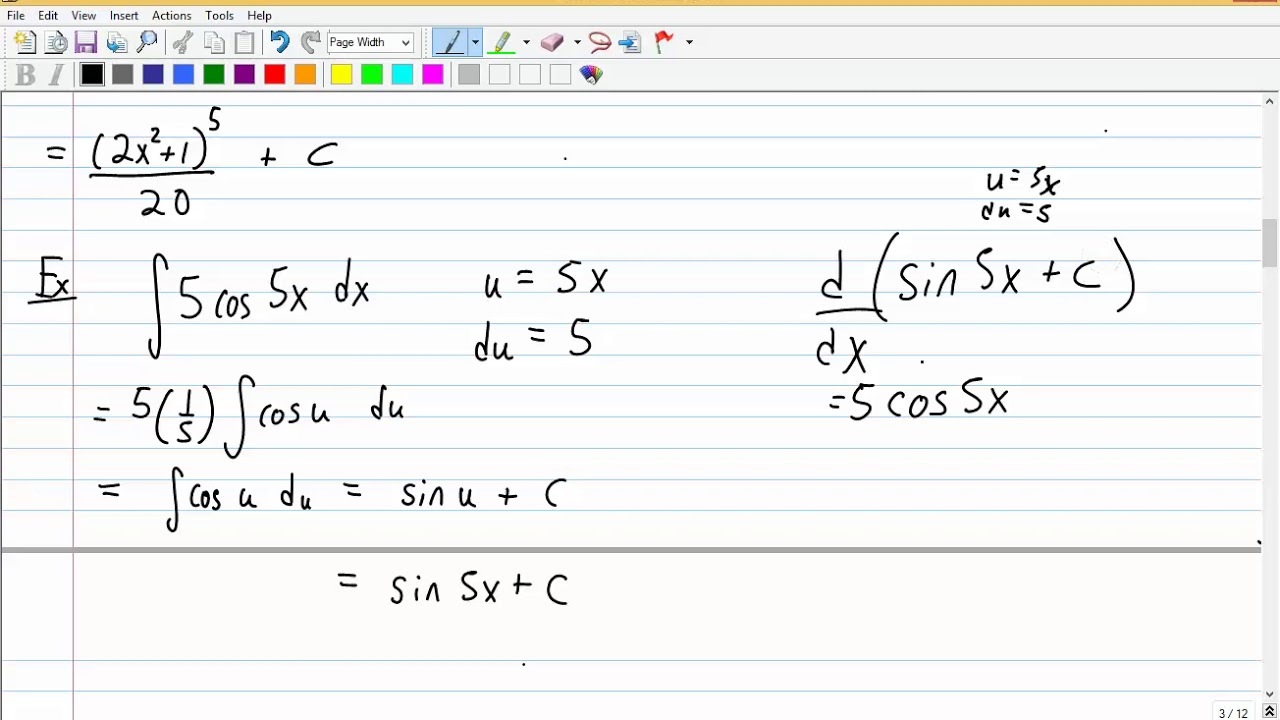 File Edit View Insert Actions Tools Help
Page Width
B I
= (2x²+1)⁵ / 20 + C
u = 5x
du = 5
Ex ∫ 5 cos 5x dx
u = 5x
du = 5
= 5(1/5) ∫ cos u du
= ∫ cos u du = sin u + C
= sin 5x + C
d/dx (sin 5x + C)
= 5 cos 5x
3 / 12